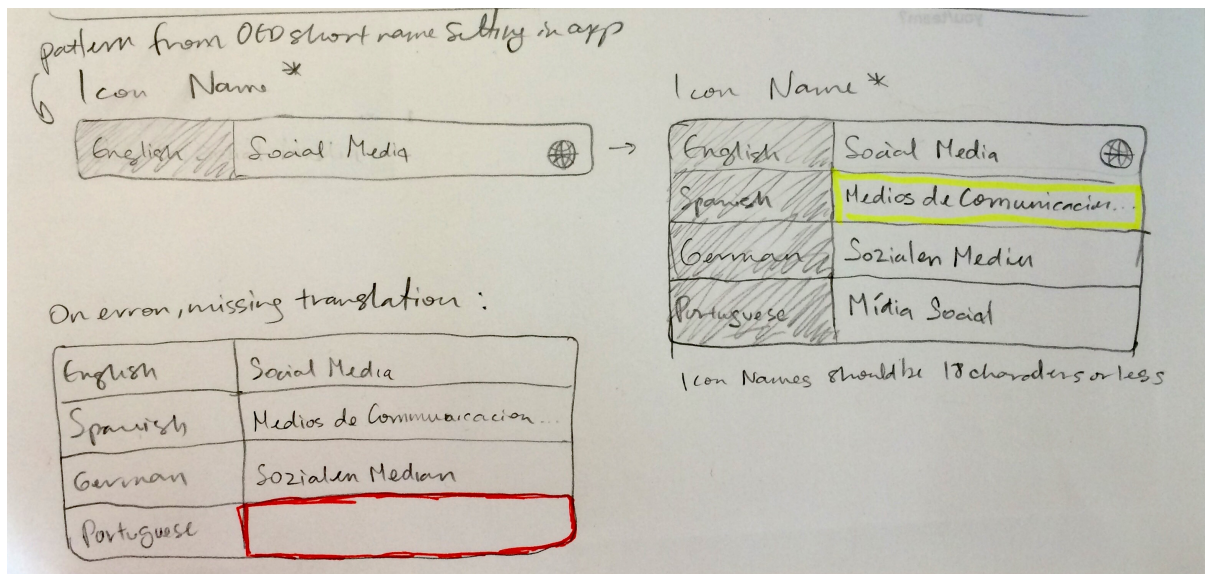 pattern from OED short name setting in app
Icon Name*
English Social Media
Icon Name*
English Social Media
Spanish Medios de Comunicacion...
German Sozialen Medien
Portuguese Mídia Social
Icon Names should be 18 characters or less
On error, missing translation:
English Social Media
Spanish Medios de Communicacion...
German Sozialen Median
Portuguese